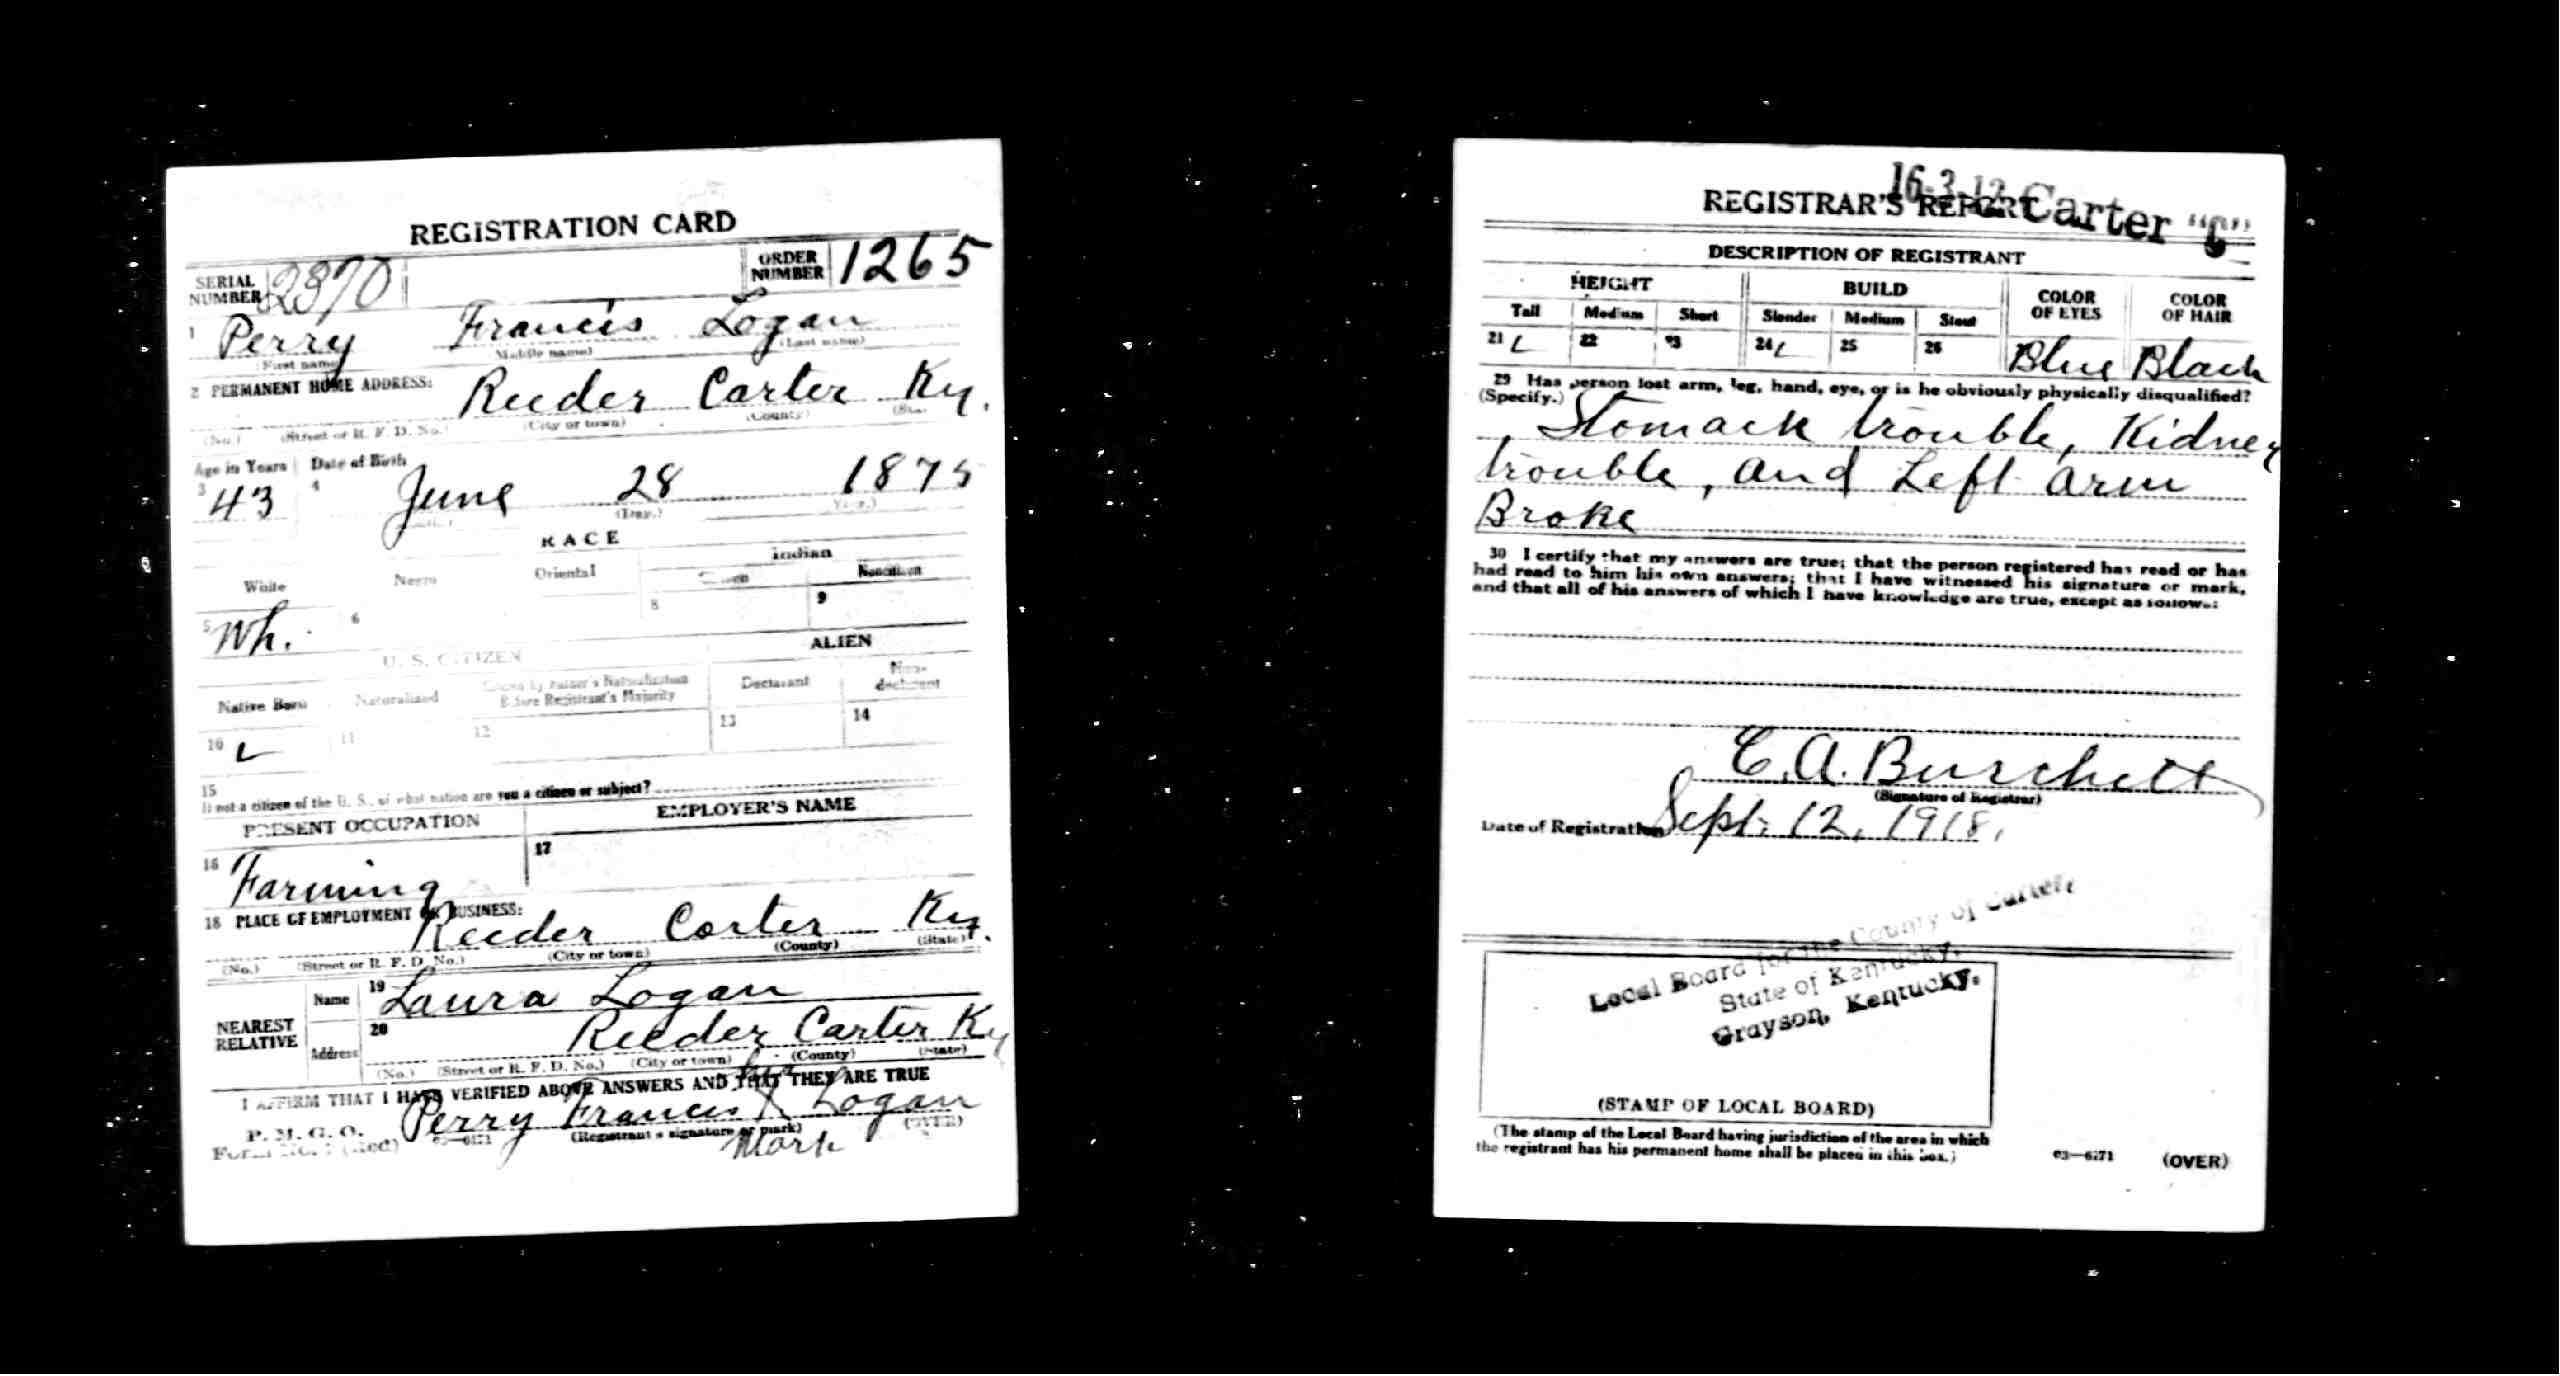 REGISTRATION CARD
SERIAL NUMBER 2370 ORDER NUMBER 1265
1 Perry Francis Logan
(First name) (Middle name) (Last name)
2 PERMANENT HOME ADDRESS:
Reeder Carter Ky.
(No.) (Street or R. F. D. No.) (City or town) (County)
Age in Years Date of Birth
3 43 4 June 28 1875
(Day.) (Year.)
RACE
White Negro Oriental Indian
Citizen Noncitizen
5 Wh. 6 8 9
U. S. CITIZEN ALIEN
Native Born Naturalized Citizen by Father's Naturalization Before Registrant's Majority Declarant Non-declarant
10 ✓ 11 12 13 14
15
If not a citizen of the U. S., of what nation are you a citizen or subject?
PRESENT OCCUPATION EMPLOYER'S NAME
16 Farming 17
18 PLACE OF EMPLOYMENT OR BUSINESS:
Reeder Corter Ky.
(No.) (Street or R. F. D. No.) (City or town) (County) (State)
NEAREST RELATIVE
Name 19 Laura Logan
Address 20 Reeder Carter Ky
(No.) (Street or R. F. D. No.) (City or town) (County) (State)
I AFFIRM THAT I HAVE VERIFIED ABOVE ANSWERS AND THAT THEY ARE TRUE
Perry Francis X Logan
P. M. G. O.
Form No. 1 (Red) 03—6171 (Registrant's signature or mark) (OVER)
Mark
16-3-12 Carter "C"
REGISTRAR'S REPORT
DESCRIPTION OF REGISTRANT
HEIGHT BUILD COLOR OF EYES COLOR OF HAIR
Tall Medium Short Slender Medium Stout
21 ✓ 22 23 24 ✓ 25 26 Blue Black
29 Has person lost arm, leg, hand, eye, or is he obviously physically disqualified?
(Specify.)
Stomack trouble, Kidney
trouble, and Left arm
Broke
30 I certify that my answers are true; that the person registered has read or has
had read to him his own answers; that I have witnessed his signature or mark,
and that all of his answers of which I have knowledge are true, except as follows:
C. A. Burchett
(Signature of Registrar)
Date of Registration Sept. 12, 1918.
Local Board for the County of Carter,
State of Kentucky,
Grayson, Kentucky.
(STAMP OF LOCAL BOARD)
(The stamp of the Local Board having jurisdiction of the area in which
the registrant has his permanent home shall be placed in this box.)
03—6171 (OVER)